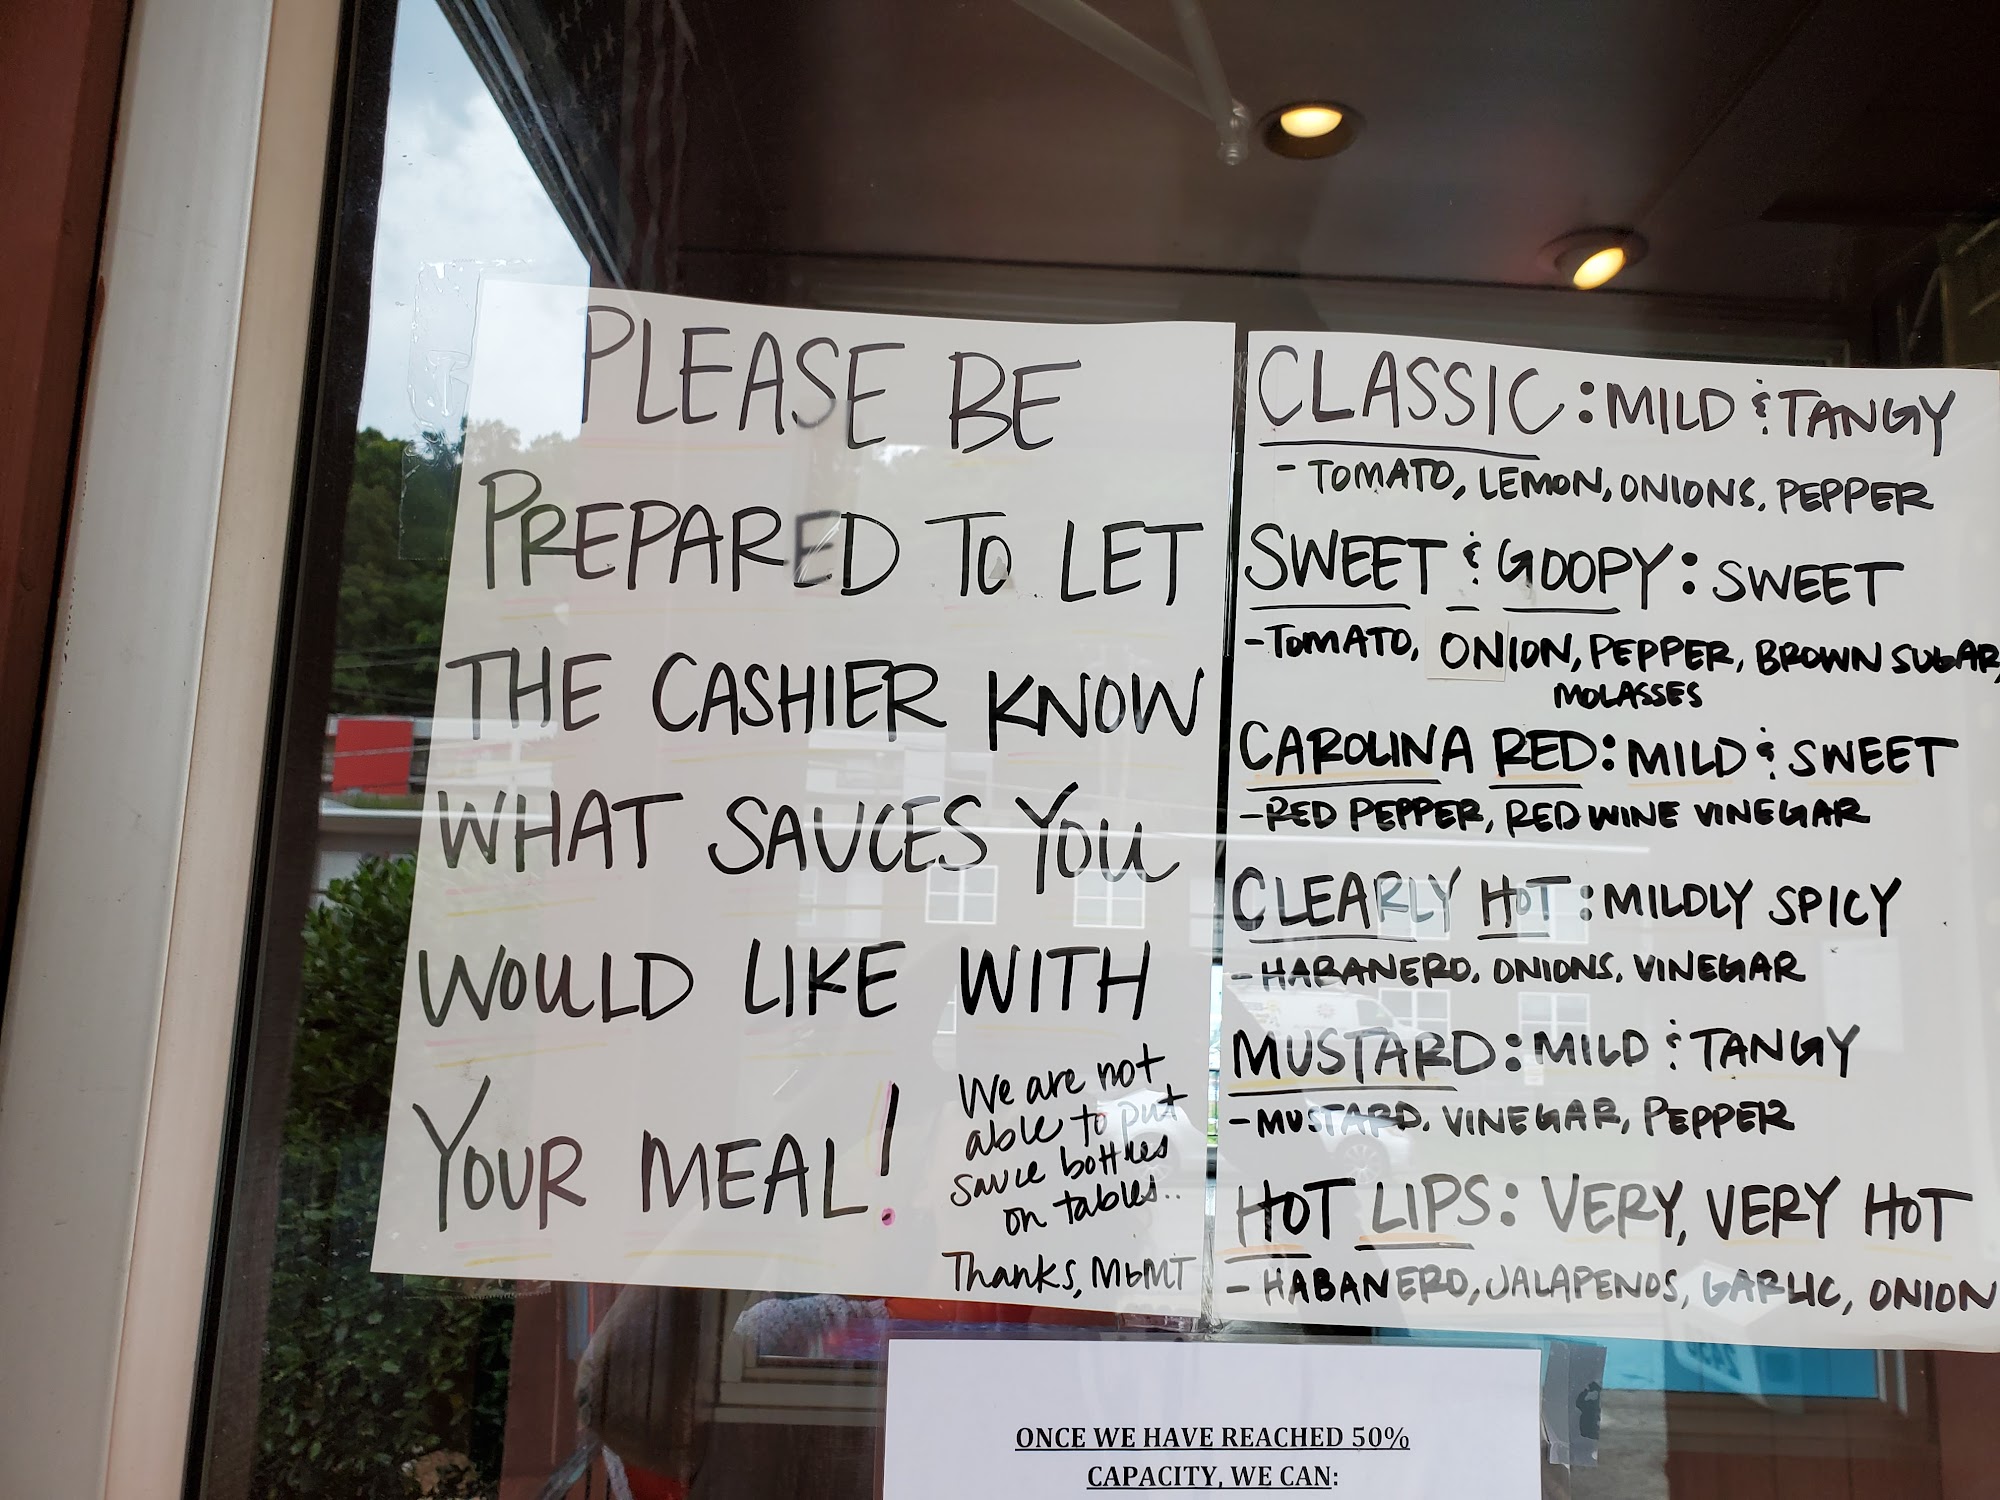 PLEASE BE
PREPARED TO LET
THE CASHIER KNOW
WHAT SAUCES YOU
WOULD LIKE WITH
YOUR MEAL!
We are not
able to put
sauce bottles
on tables..
Thanks, MbMT
CLASSIC: MILD & TANGY
- TOMATO, LEMON, ONIONS, PEPPER
SWEET & GOOPY: SWEET
- TOMATO, ONION, PEPPER, BROWN SUGAR,
MOLASSES
CAROLINA RED: MILD & SWEET
- RED PEPPER, RED WINE VINEGAR
CLEARLY HOT: MILDLY SPICY
- HABANERO, ONIONS, VINEGAR
MUSTARD: MILD & TANGY
- MUSTARD, VINEGAR, PEPPER
HOT LIPS: VERY, VERY HOT
- HABANERO, JALAPENOS, GARLIC, ONION
ONCE WE HAVE REACHED 50%
CAPACITY, WE CAN: